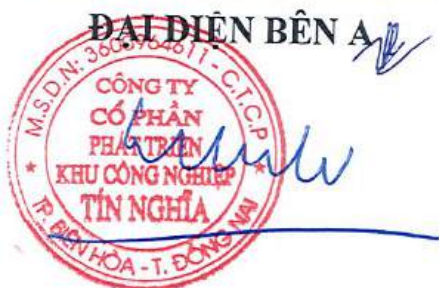 ĐẠI DIỆN BÊN A
M.S.D.N: 3600964611 - C.T.C.P
CÔNG TY
CỔ PHẦN
PHÁT TRIỂN
KHU CÔNG NGHIỆP
TÍN NGHĨA
TP. BIÊN HÒA - T. ĐỒNG NAI